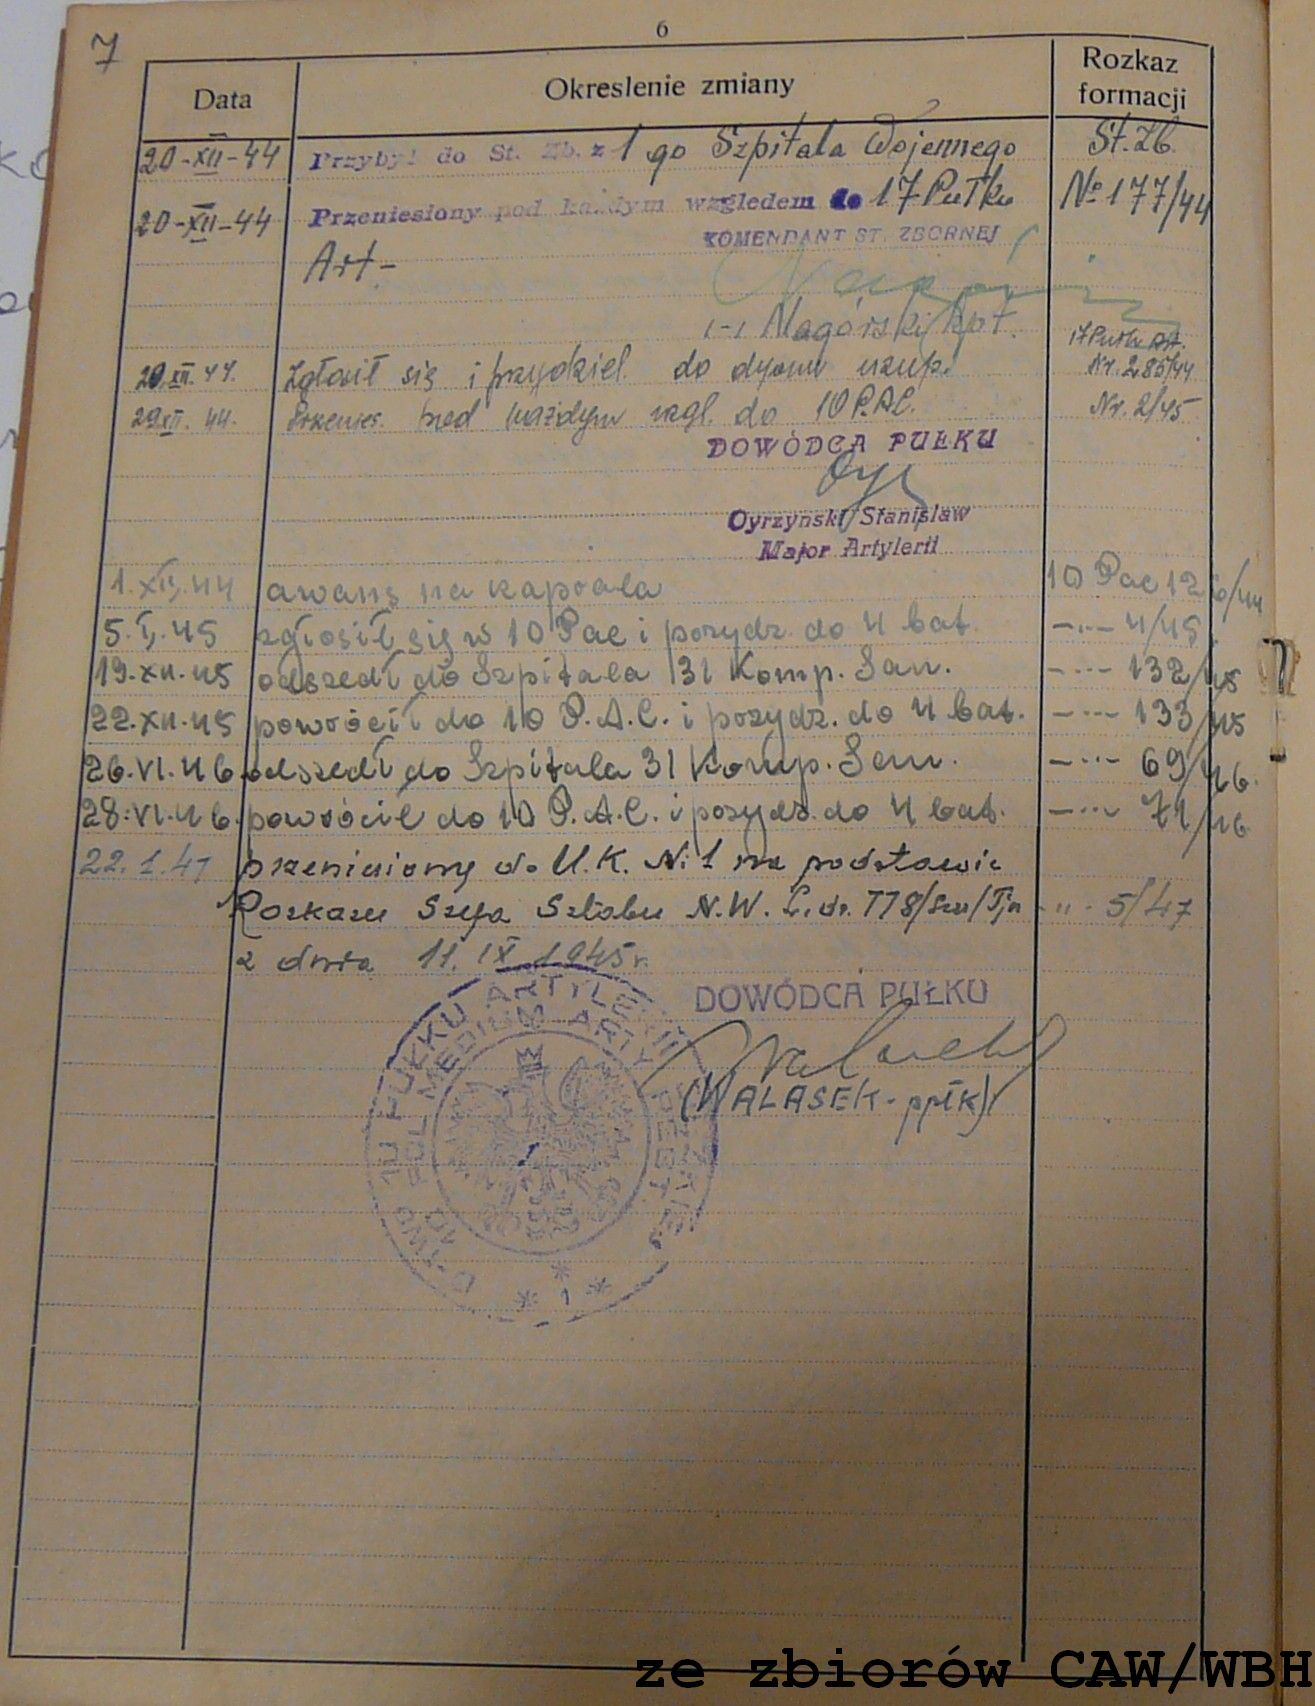 7
6
Data Okreslenie zmiany Rozkaz formacji
20-XII-44 Przybył do St. Zb. z 1 go Szpitala Wojennego St. Zb.
20-XII-44 Przeniesiony pod każdym względem do 17 Pułku No 177/44
KOMENDANT ST. ZBORNEJ
Art-
(-) Nagórski kpt.
17 Pułk Art.
20.XII.44. Zgłosił się i przydziel. do dyonu uzup. Nr. 285/44
29.XII.44. Przenies. pod każdym wzgl. do 10 P.A.C. Nr. 2/45
DOWÓDCA PUŁKU
Oyrzynski Stanislaw
Major Artylerii
1.XII.44 awans na kaprala 10 Pac 126/44
5.I.45 zgłosił się w 10 Pac i przydz. do 4 bat. -"- 4/45
19.XII.45 odszedł do Szpitala 31 Komp. San. -"- 132/45
22.XII.45 powrócił do 10 P.A.C. i przydz. do 4 bat. -"- 133/45
26.VI.46 odszedł do Szpitala 31 Komp. San. -"- 69/46.
28.VI.46. powrócił do 10 P.A.C. i przydz. do 4 bat. -"- 71/46
22.1.47 przeniesiony do U.K. Nr 1 na podstawie
Rozkazu Szefa Sztabu N.W. L.dz. 778/ /Tjn -"- 5/47
z dnia 11.IX.1945 r.
DOWÓDCA PUŁKU
(WALASEK - ppłk)
D-TWO 10 PUŁKU ARTYLERII CIĘŻKIEJ
10 POL. MEDIUM ARTY REGT
* 1 *
ze zbiorów CAW/WBH